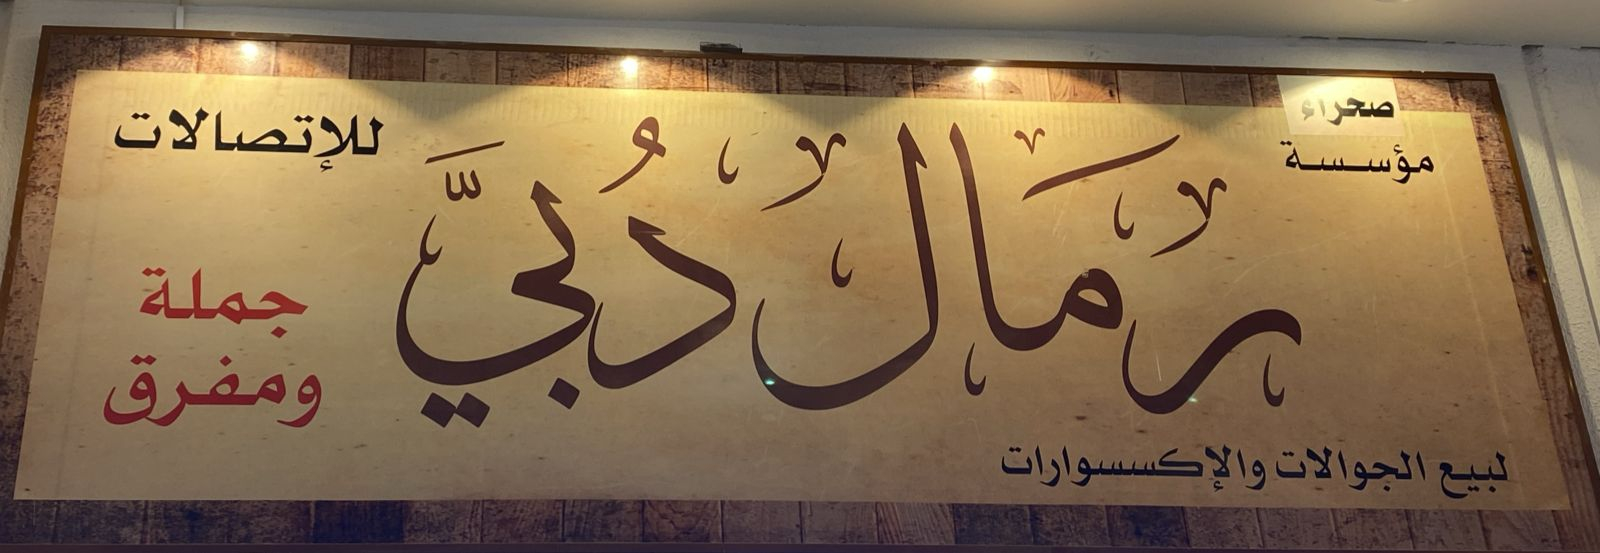 صحراء
مؤسسة
رمال دُبيّ
للإتصالات
جملة
ومفرق
لبيع الجوالات والإكسسوارات